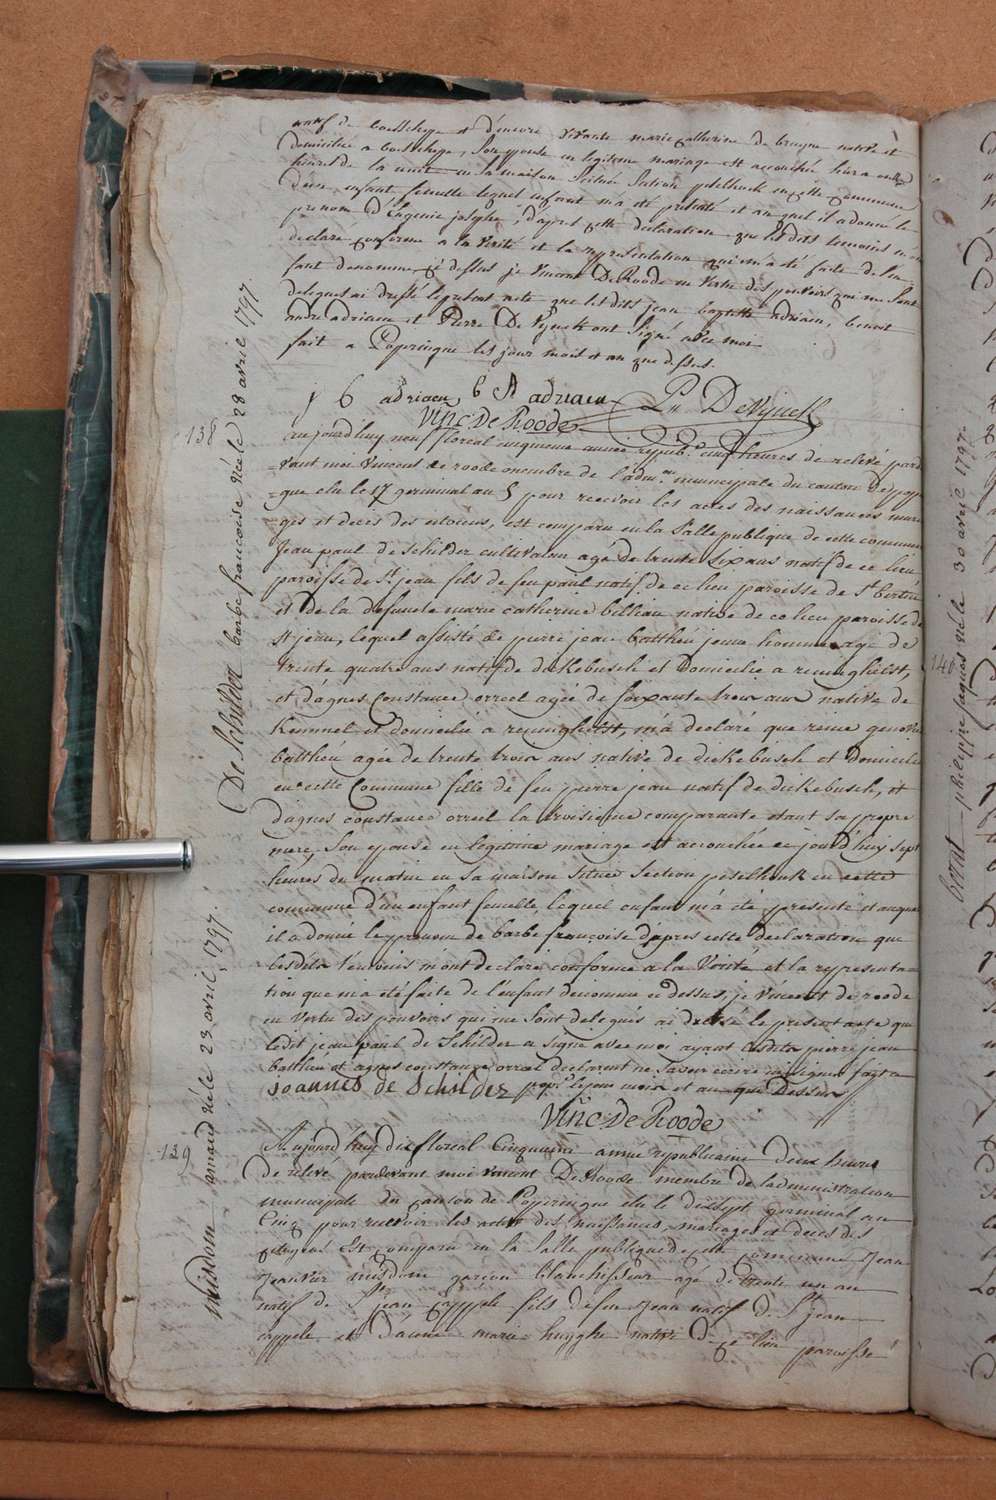 natif de boesschepe et d'encore vivante marie catherine de bruyne native et
domiciliée a boesschepe, son epouse en legitime mariage est accouchée hier a onze
heures de la nuit en sa maison située section peselhoek en cette commune
d'un enfant femelle lequel enfant m'a été presenté et au quel il a donné le
prenom d'Eugenie josephe, d'après cette declaration que les dits temoins m'ont
declaré conforme a la verité et la representation qui m'a été faite de l'en
fant denommé ci dessus je Vincent De Roode en vertu des pouvoirs qui me sont
delegués ai dressé le present acte que les dits jean baptiste adriaen, benoit
andre adriaen et Pierre De Vynck ont signé avec moi
fait a Poperingue les jour mois et an que dessus.
j b adriaen b A adriaen P. DeVynck
Vinc. De Roode
138
De Schilder barbe francoise née le 28 avril 1797.
aujourd'huy neuf floreal cinquieme année republ. cinq heures de relevé pard
=vant moi Vincent de roode membre de l'adm.on municipale du canton de pop
=gue elu le 17 germinal an 5 pour recevoir les actes des naissances maria
ges et deces des citoiens, est comparu en la salle publique de cette commune
Jean paul de schilder cultivateur agé de trente six ans natif de ce lieu
paroisse de St jean fils de feu paul natif de ce lieu paroisse de St bertin
et de la defuncte marie catherine billiau native de ce lieu paroisse de
St jean, lequel assisté de pierre jean batthéu jeune homme agé de
trente quatre ans natif de dickebusch et Domicilié a reninghelst,
et d'agnes Constance orreel agée de soixante trois ans native de
Kemmel et domiciliée a reninghelst, m'a declaré que reine genoveve
batthéu agée de trente trois ans native de dickebusch et Domiciliée
en cette Commune fille de feu pierre jean natif de dickebusch, et
d'agnes constance orreel la troisieme comparante etant sa propre
mere, son epouse en legitime mariage est accouchée ce jourd'huy sept
heures du matin en sa maison située section peselhoek en cette
commune d'un enfant femelle, lequel enfant m'a été presenté et auquel
il a donné le prenom de barbe françoise d'apres cette declaration que
lesdits temoins m'ont declaré conforme a la Verité et la representa=
tion que m'a été faite de l'enfant denommé ci dessus, je Vincent de roode
en vertu des pouvoirs qui me sont delegués ai dressé le present acte que
ledit jean paul de Schilder a signé avec moi ayant lesdits pierre jean
batthéu et agnes constance orreel declarent ne savoir ecrire ni signer fait a
joannes de Schilder pop.e le jour mois et an que Dessus
Vinc. De Roode
139
Misdom amand né le 23 avril 1797.
Aujourd'huy dix floreal Cinquieme année republicaine deux heures
de relevé pardevant moi Vincent De Roode membre de ladministration
municipale du canton de Poperingue elu le dixsept germinal an
Cinq pour recevoir les actes des Naissances, mariages et deces des
citoyens est comparu en la Salle publique de cette commune Jean
Xavier misdom garçon blanchisseur agé de trente un an
natif de St jean cappelle fils de feu Jean natif de St jean
cappelle et D'anne marie huyghe native de ce lieu paroisse
140
Borrat philippe jacques né le 30 avril 1797.